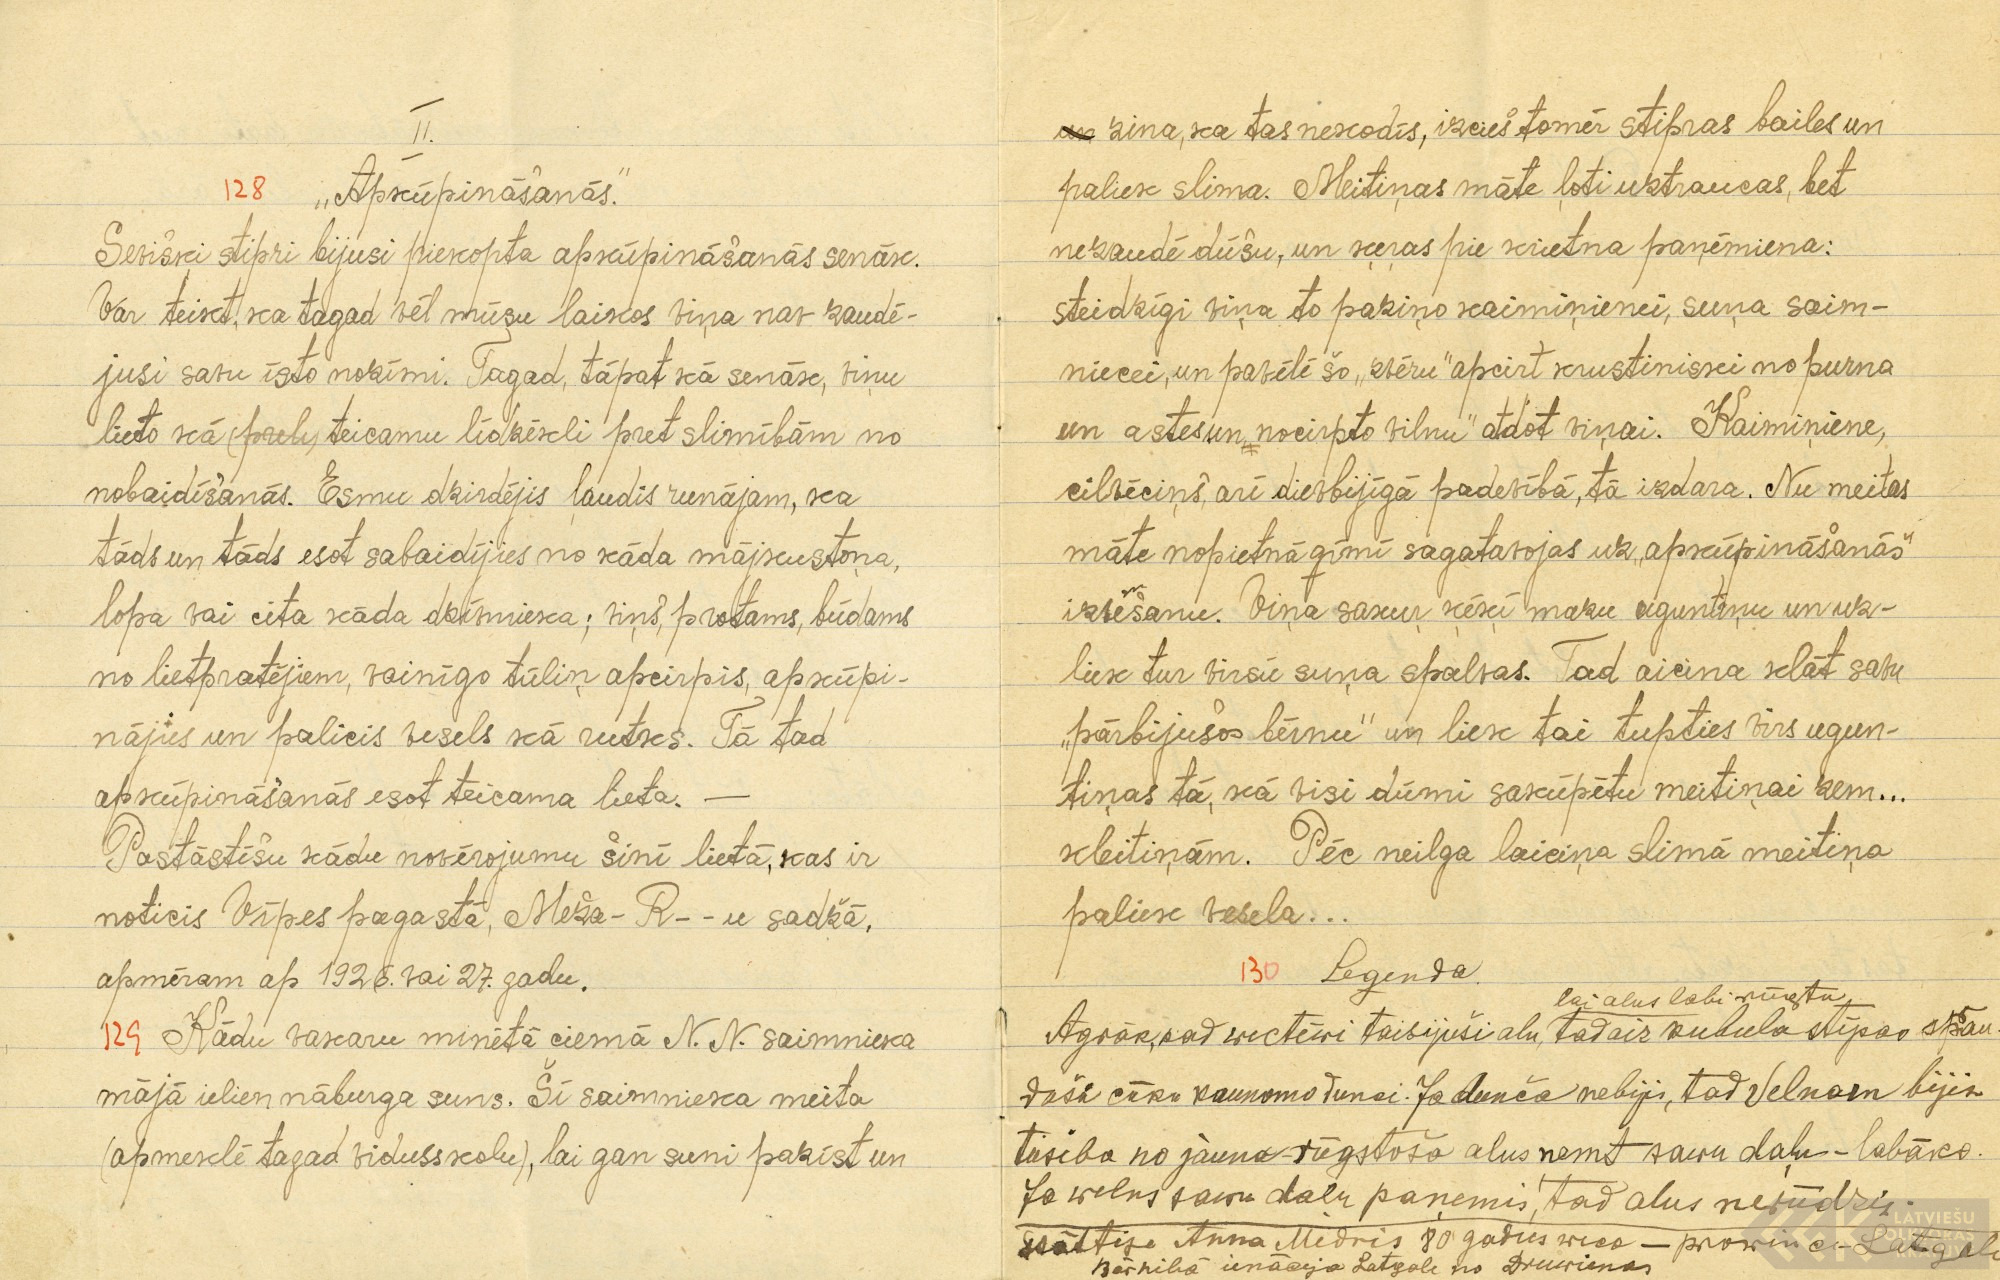 II.
128 „Apkūpināšanās."
Sevišķi stipri bijusi piekopta apkūpināšanās senāk.
Var teikt, ka tagad vēl mūsu laikos viņa nav zaudē-
jusi savu īsto nozīmi. Tagad, tāpat kā senāk, viņu
lieto kā teicamu līdzēkli pret slimībām no
nobaidīšanās. Esmu dzirdējis ļaudis runājam, ka
tāds un tāds esot sabaidījies no kāda mājkustoņa,
lopa vai cita kāda dzīvnieka; viņš, protams, būdams
no lietpratējiem, vainīgo tūliņ apcirpis, apkūpi-
nājies un palicis vesels kā rutks. Tā tad
apkūpināšanās esot teicama lieta. —
Pastāstīšu kādu novērojumu šinī lietā, kas ir
noticis Vīpes pagastā, Meža - R - - u sadžā,
apmēram ap 1926. vai 27. gadu.
129 Kādu vakaru minētā ciemā N. N. saimnieka
mājā ielien nāburga suns. Šī saimnieka meita
(apmeklē tagad vidusskolu), lai gan suni pazīst un
un zina, ka tas nekodīs, izcieš tomēr stipras bailes un
paliek slima. Meitiņas māte ļoti uztraucas, bet
nezaudē dūšu, un ķeras pie krietna paņēmiena:
steidzīgi viņa to paziņo kaimiņienei, suņa saim-
niecei, un pavēlē šo „zvēru" apcirt krustiniski no purna
un astes un „nocirpto vilnu" atdot viņai. Kaimiņiene,
cilvēciņš, arī dievbijīgā padevībā, tā izdara. Nu meitas
māte nopietnā ģīmī sagatavojas uz „apkūpināšanās"
izvešanu. Viņa sakur ķēķī mazu uguntiņu un uz-
liek tur virsū suņa spalvas. Tad aicina klāt savu
„pārbijušos bērnu" un liek tai tupties virs ugun-
tiņas tā, kā visi dūmi sakūpētu meitiņai zem...
kleitiņām. Pēc neilga laiciņa slimā meitiņa
paliek vesela...
130 Legenda.
lai alus labi rūgtu
Agrāk, kad wectēwi taisijuši alu, tad aiz kubula stīpas
cūku dunci. Ja dunča nebijis, tad Velnam bijis
tiesiba no jauna rūgstoša alus ņemt sawu daļu - labāko.
Ja welns sawu daļu paņemis, tad alus nerūdzis.
Anna Mednis 80 gadus weca —
Bērnibā ienācēja Latgalē no Druwienas